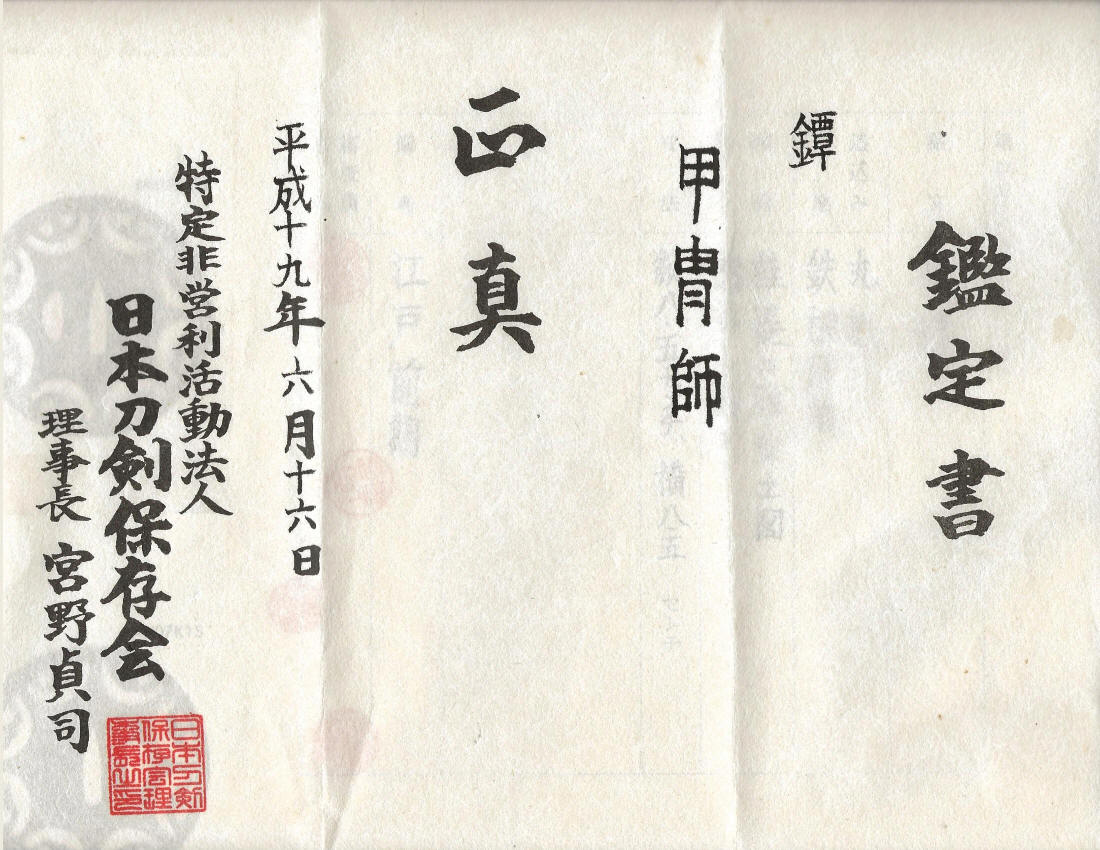 鑑定書
鐔
甲冑師
正真
平成十九年六月十六日
特定非営利活動法人
日本刀剣保存会
理事長 宮野貞司
日本刀剣
保存会理
事長之印